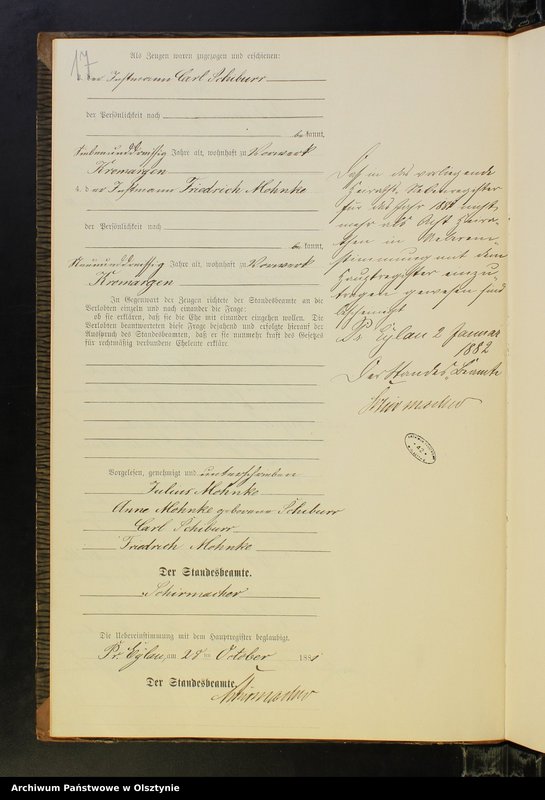 17
Als Zeugen waren zugezogen und erschienen:
der Instmann Carl Schiburr
der Persönlichkeit nach
be kannt,
siebenunddreißig Jahre alt, wohnhaft zu Vorwerk
Kromargen
4. der Instmann Friedrich Mohnke
der Persönlichkeit nach
be kannt,
neununddreißig Jahre alt, wohnhaft zu Vorwerk
Kromargen
In Gegenwart der Zeugen richtete der Standesbeamte an die
Verlobten einzeln und nach einander die Frage:
ob sie erklären, daß sie die Ehe mit einander eingehen wollen. Die
Verlobten beantworteten diese Frage bejahend und erfolgte hierauf der
Ausspruch des Standesbeamten, daß er sie nunmehr kraft des Gesetzes
für rechtmäßig verbundene Eheleute erkläre
Vorgelesen, genehmigt und unterschrieben
Julius Mohnke
Anna Mohnke geborene Schiburr
Carl Schiburr
Friedrich Mohnke
Der Standesbeamte.
Schirmacher
Die Uebereinstimmung mit dem Hauptregister beglaubigt.
Pr. Eylau, am 28 ten October 1881
Der Standesbeamte.
Schirmacher
Daß in das vorliegende
Heiraths-Nebenregister
für das Jahr 1881 nicht
mehr als Acht Heira-
then in Ueberein-
stimmung mit dem
Hauptregister einzu-
tragen gewesen sind
bescheinigt
Pr. Eylau 2 Januar
1882
Der Standes-Beamte
Schirmacher
Archiwum Państwowe w Olsztynie